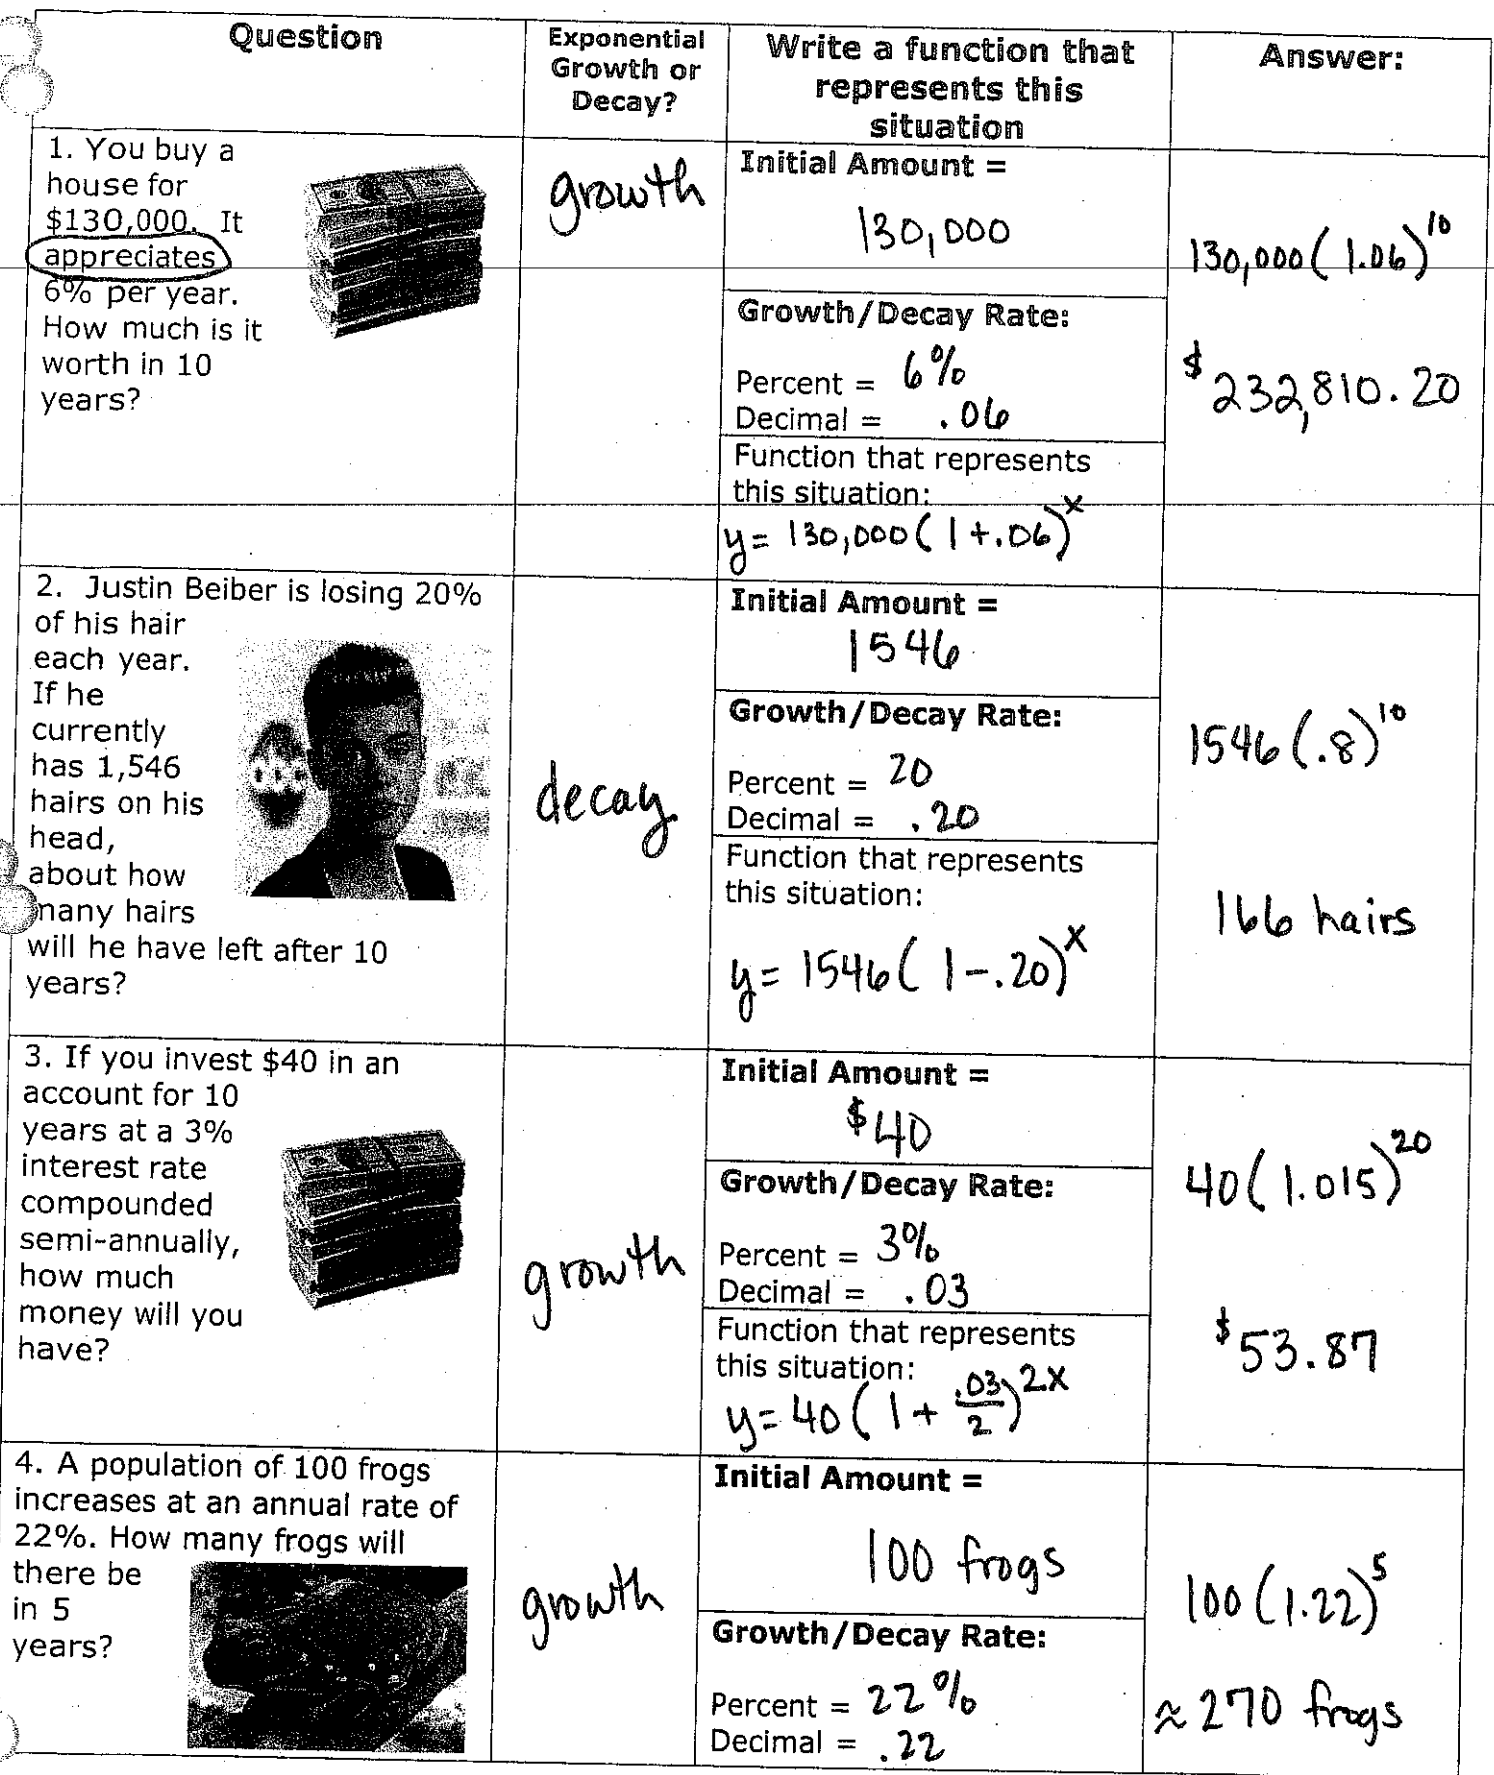 Question
Exponential
Growth or
Decay?
Write a function that
represents this
situation
Answer:
1. You buy a
house for
$130,000. It
appreciates
6% per year.
How much is it
worth in 10
years?
growth
Initial Amount =
130,000
Growth/Decay Rate:
Percent = 6%
Decimal = .06
Function that represents
this situation:
y = 130,000(1+.06)^x
130,000(1.06)^10
$232,810.20
2. Justin Beiber is losing 20%
of his hair
each year.
If he
currently
has 1,546
hairs on his
head,
about how
many hairs
will he have left after 10
years?
decay
Initial Amount =
1546
Growth/Decay Rate:
Percent = 20
Decimal = .20
Function that represents
this situation:
y = 1546(1-.20)^x
1546(.8)^10
166 hairs
3. If you invest $40 in an
account for 10
years at a 3%
interest rate
compounded
semi-annually,
how much
money will you
have?
growth
Initial Amount =
$40
Growth/Decay Rate:
Percent = 3%
Decimal = .03
Function that represents
this situation:
y = 40(1 + .03/2)^2x
40(1.015)^20
$53.87
4. A population of 100 frogs
increases at an annual rate of
22%. How many frogs will
there be
in 5
years?
growth
Initial Amount =
100 frogs
Growth/Decay Rate:
Percent = 22%
Decimal = .22
100(1.22)^5
≈ 270 frogs